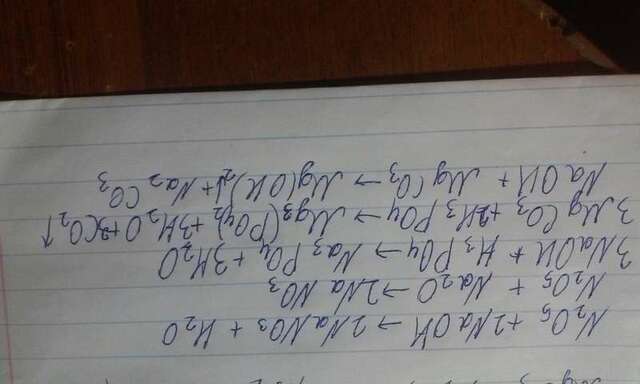 N₂O₅ + 2NaOH → 2NaNO₃ + H₂O
N₂O₅ + Na₂O → 2NaNO₃
3NaOH + H₃PO₄ → Na₃PO₄ + 3H₂O
3MgCO₃ + 2H₃PO₄ → Mg₃(PO₄)₂ + 3H₂O + 3CO₂↑
NaOH + MgCO₃ → Mg(OH)₂↓ + Na₂CO₃